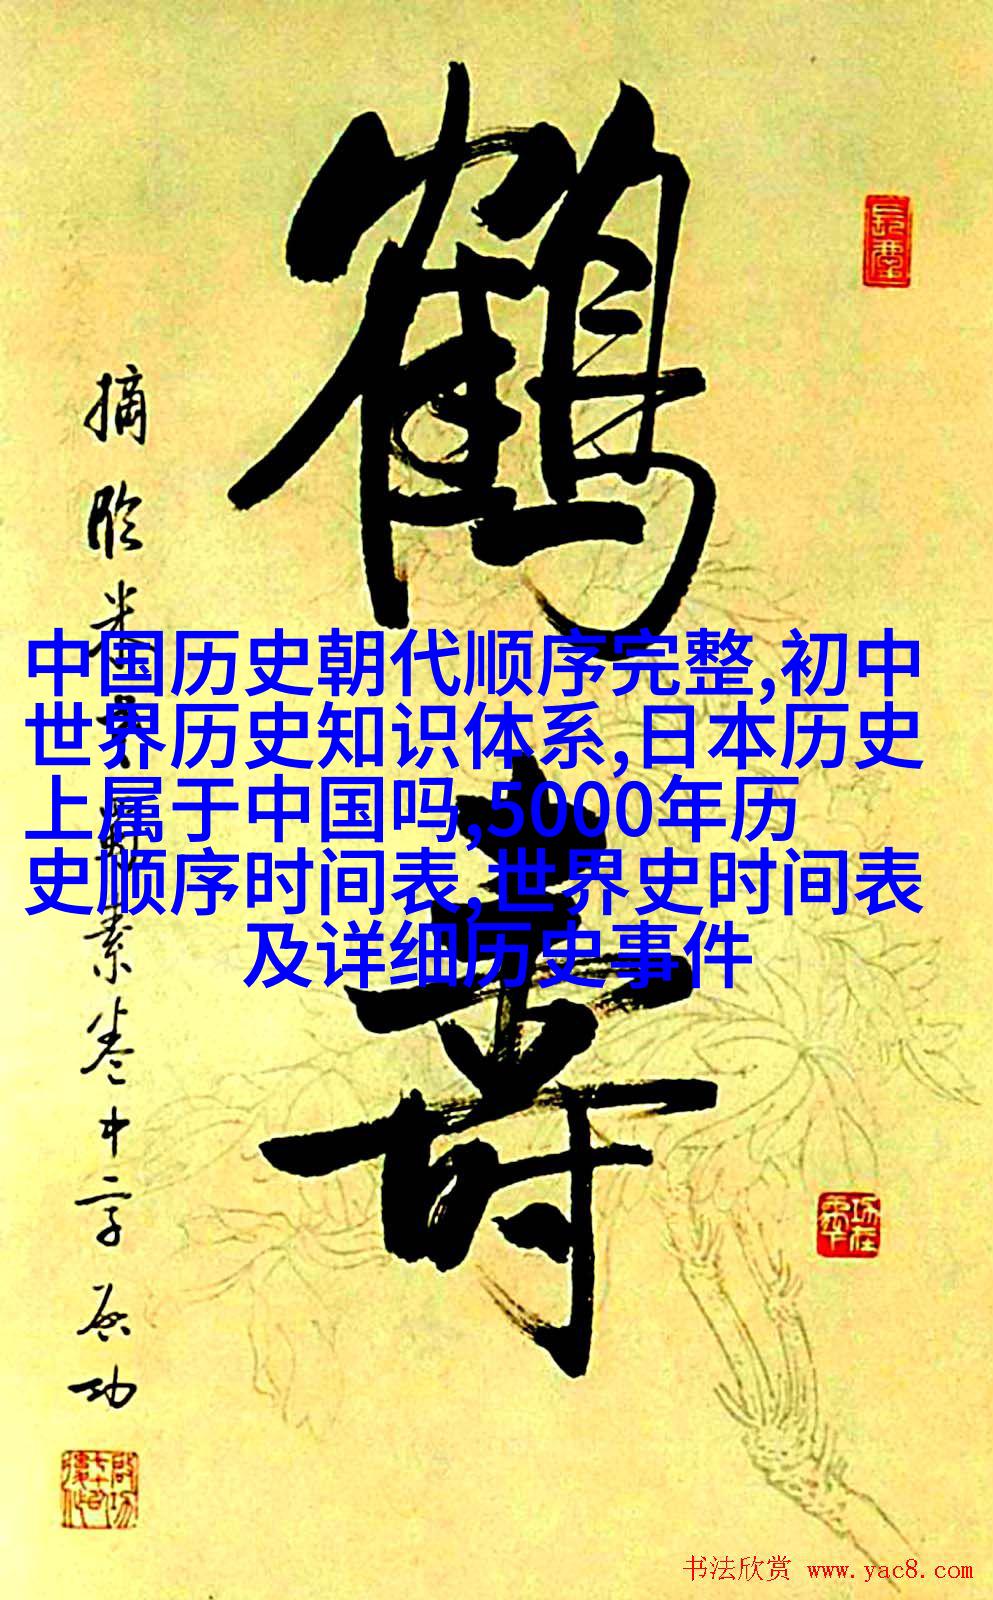 鹤寿
摘临米书断素卷中字启功
中国历史朝代顺序完整,初中
世界历史知识体系,日本历史
上属于中国吗,5000年历
史顺序时间表,世界史时间表
及详细历史事件
书法欣赏 www.yac8.com